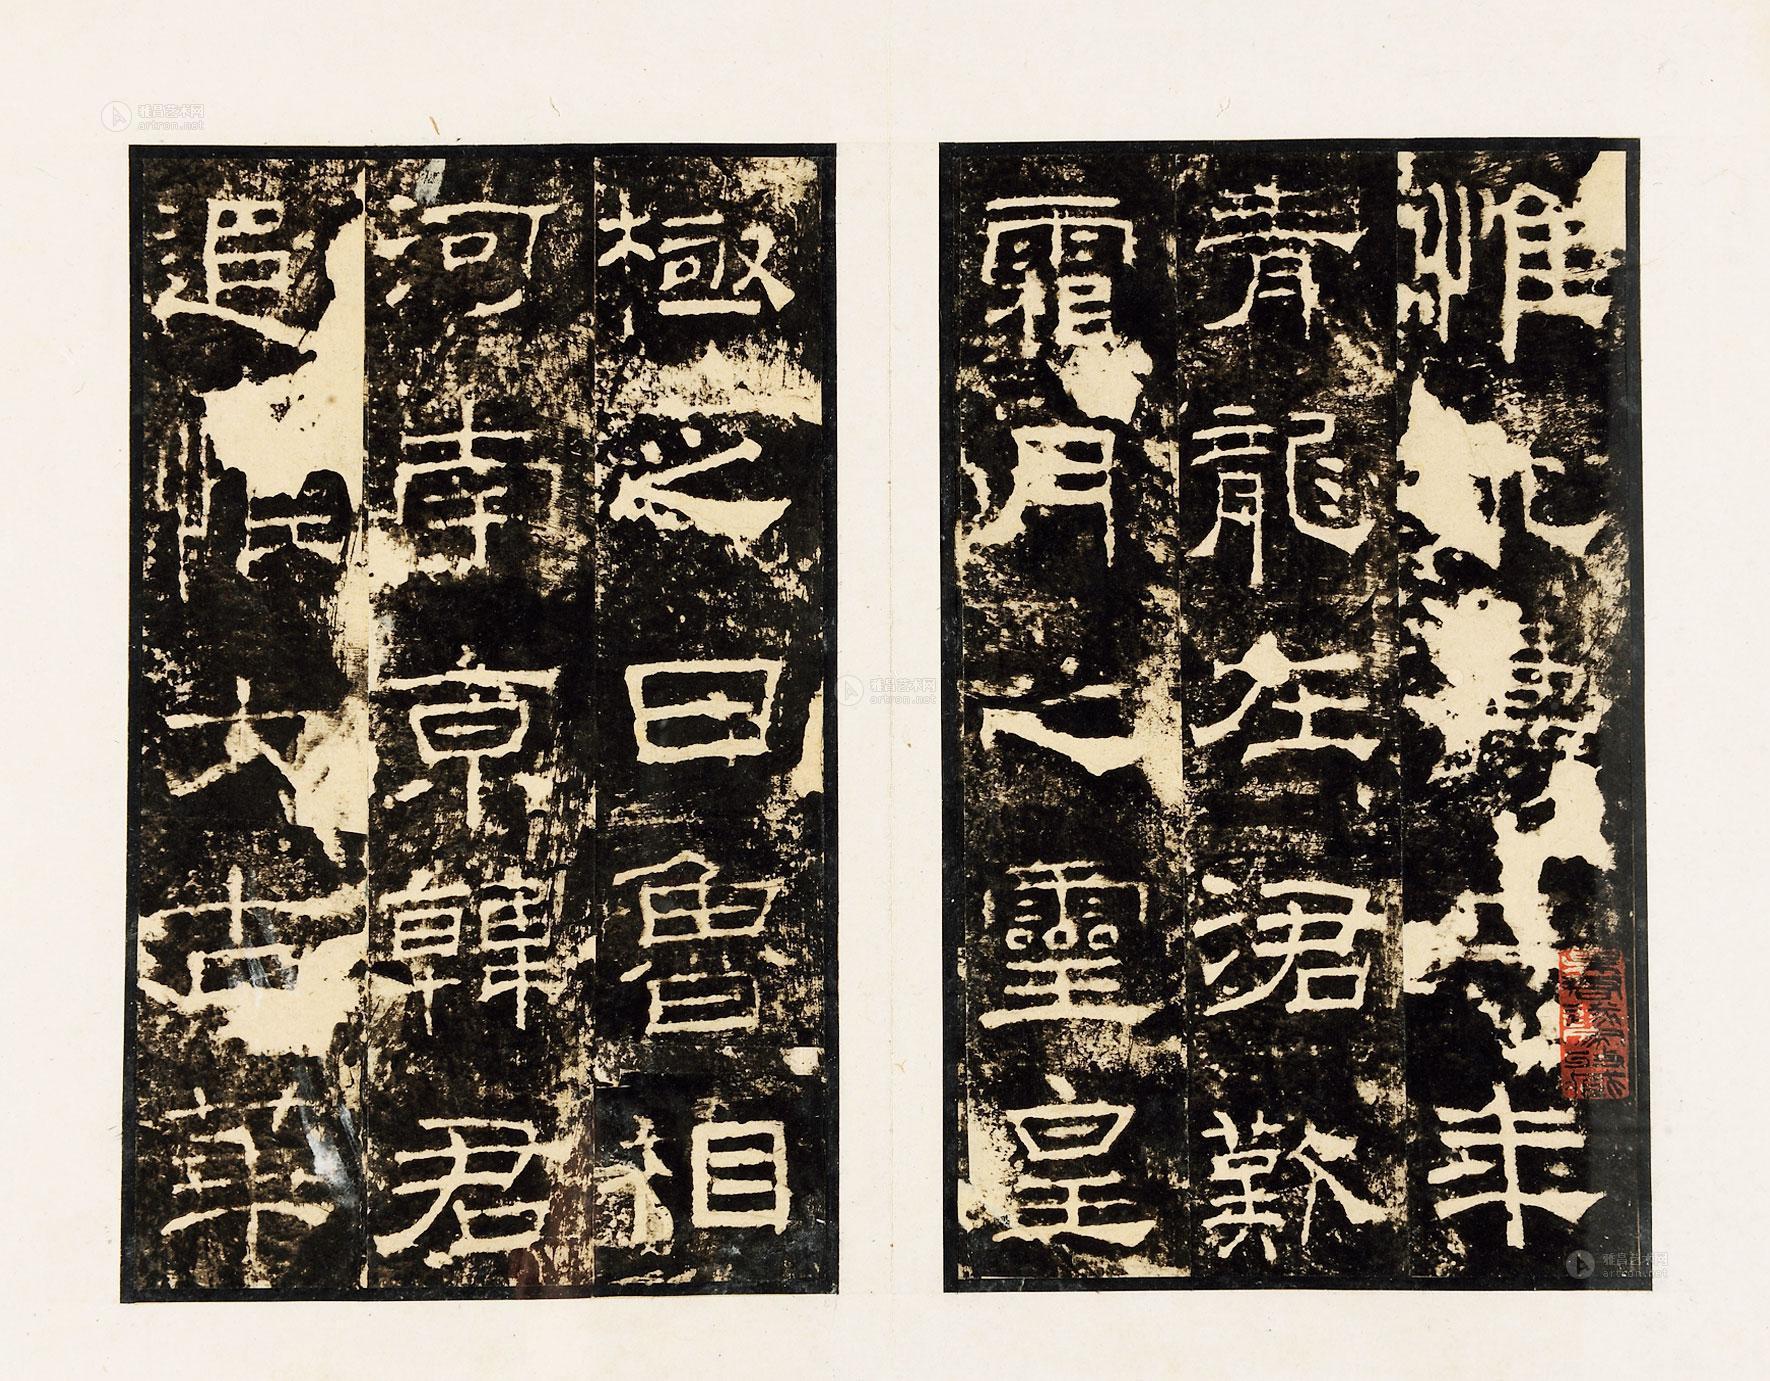 惟永壽二年
青龍在涒歎
霜月之靈皇
極之日魯相
河南京韓君
追惟大古華
雅昌艺术网
artron.net
雅昌艺术网
artron.net
雅昌艺术网
artron.net